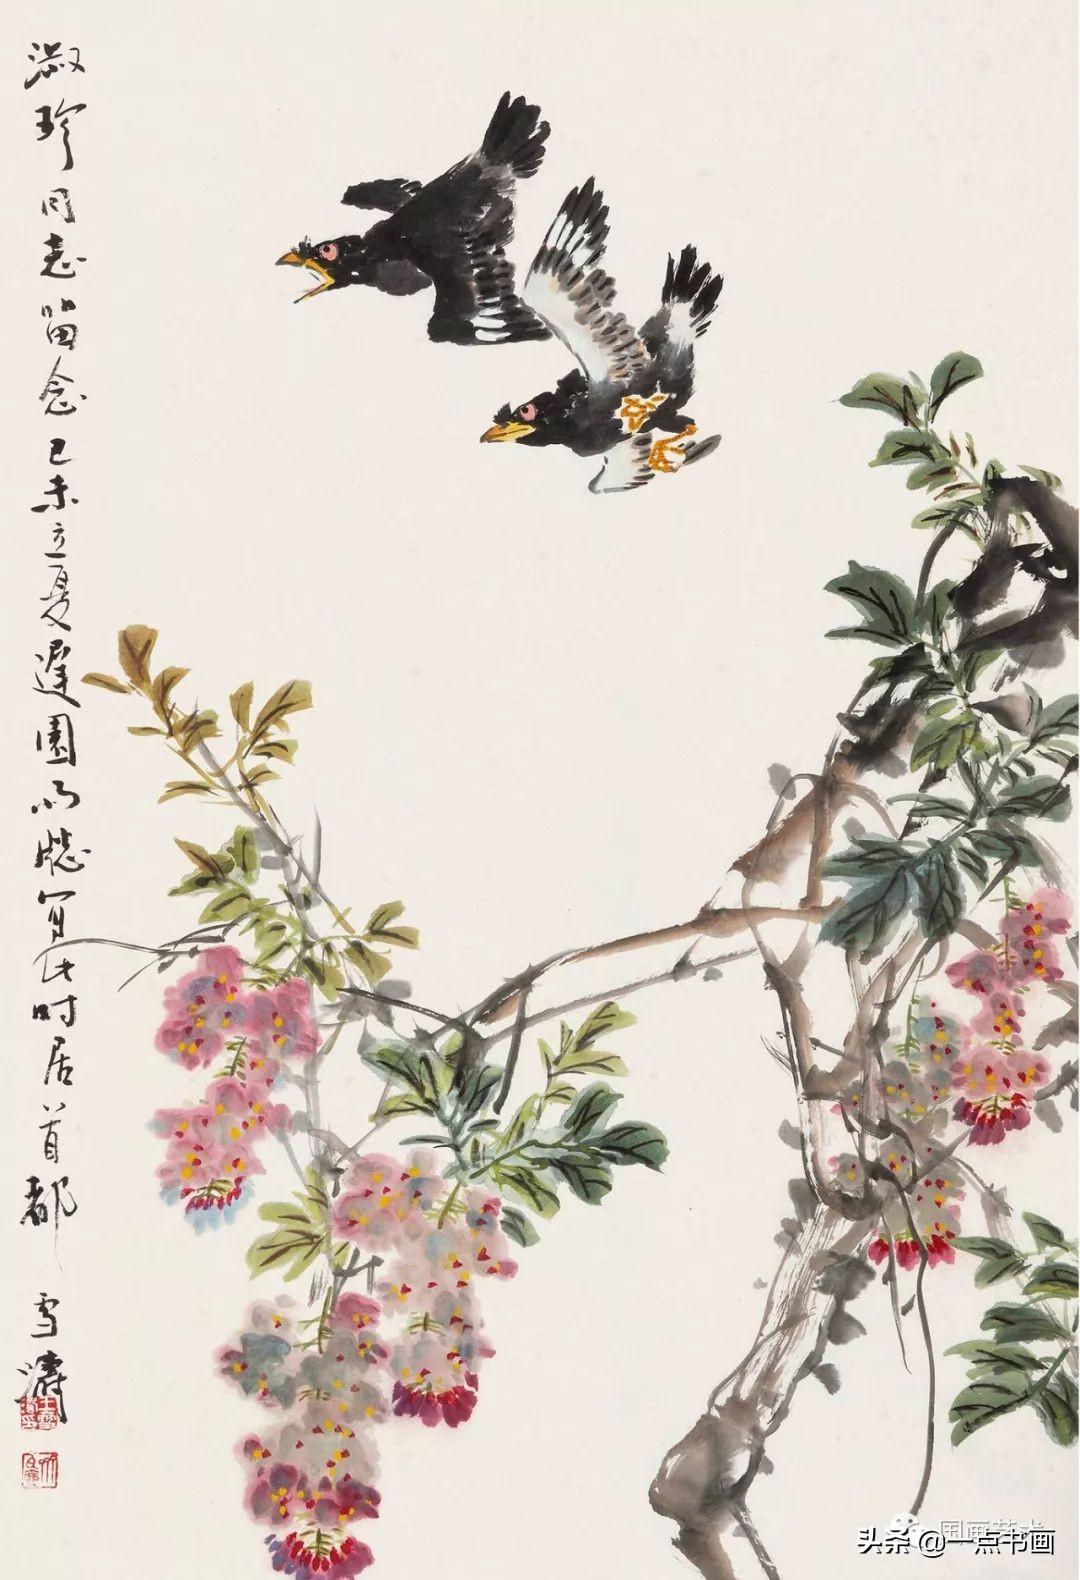 淑珍同志留念己未立夏遲園明牎寫此时居首都
雪濤
国画艺术
头条@一点书画